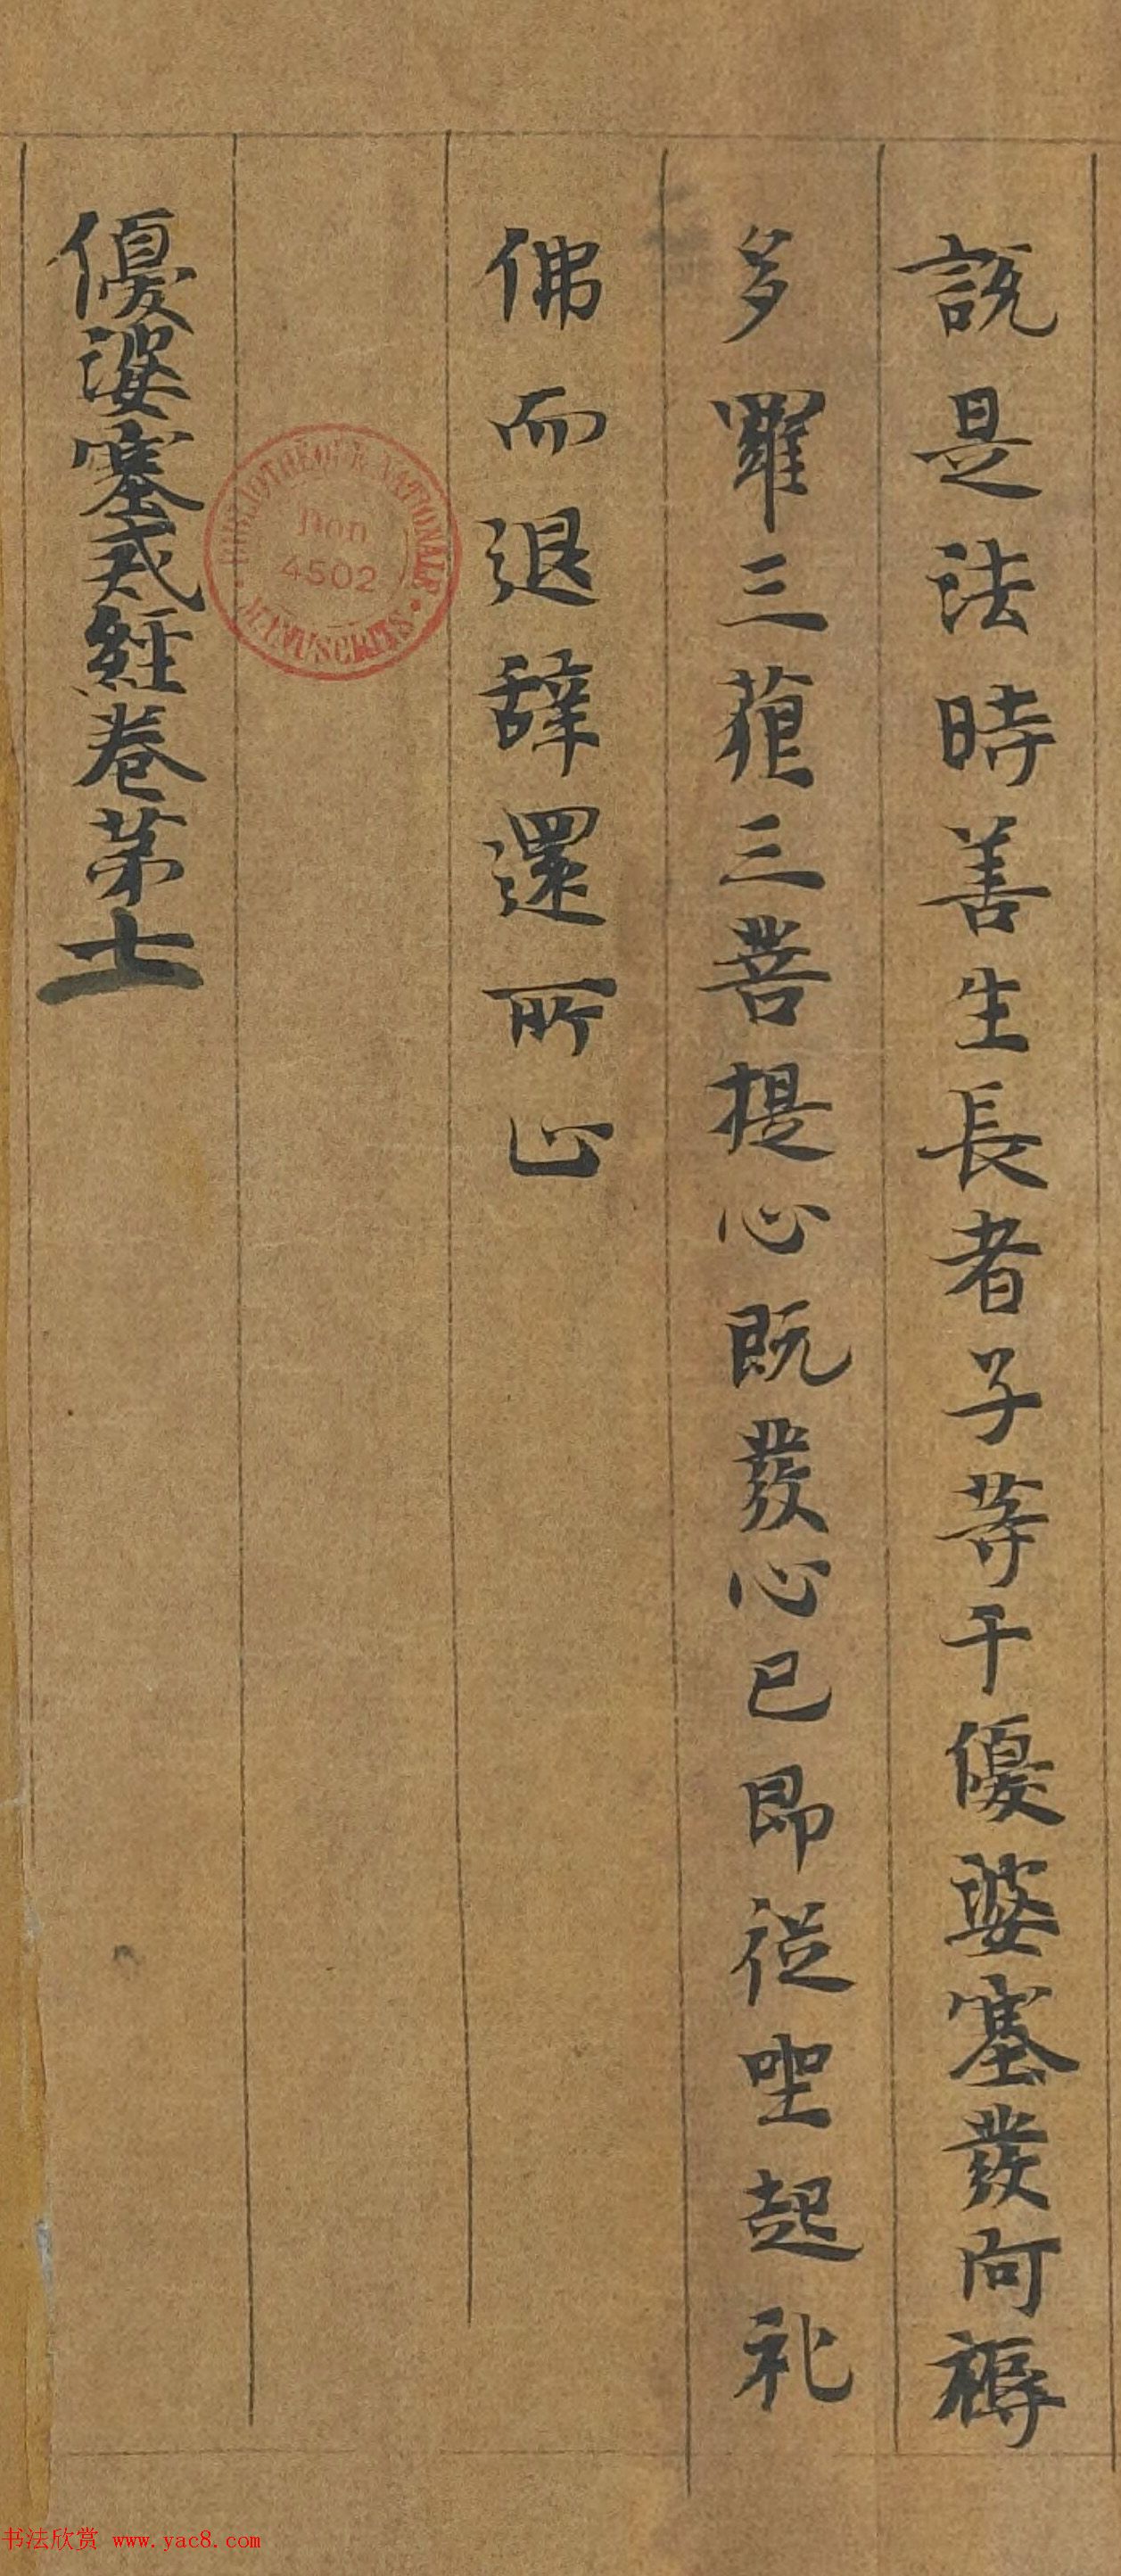 說是法時善生長者子等千優婆塞發阿耨
多羅三藐三菩提心既發心已即從坐起礼
佛而退辞還所止
優婆塞戒經卷苐十
BIBLIOTHÈQUE NATIONALE
pion
4502
MANUSCRITS
书法欣赏 www.yac8.com